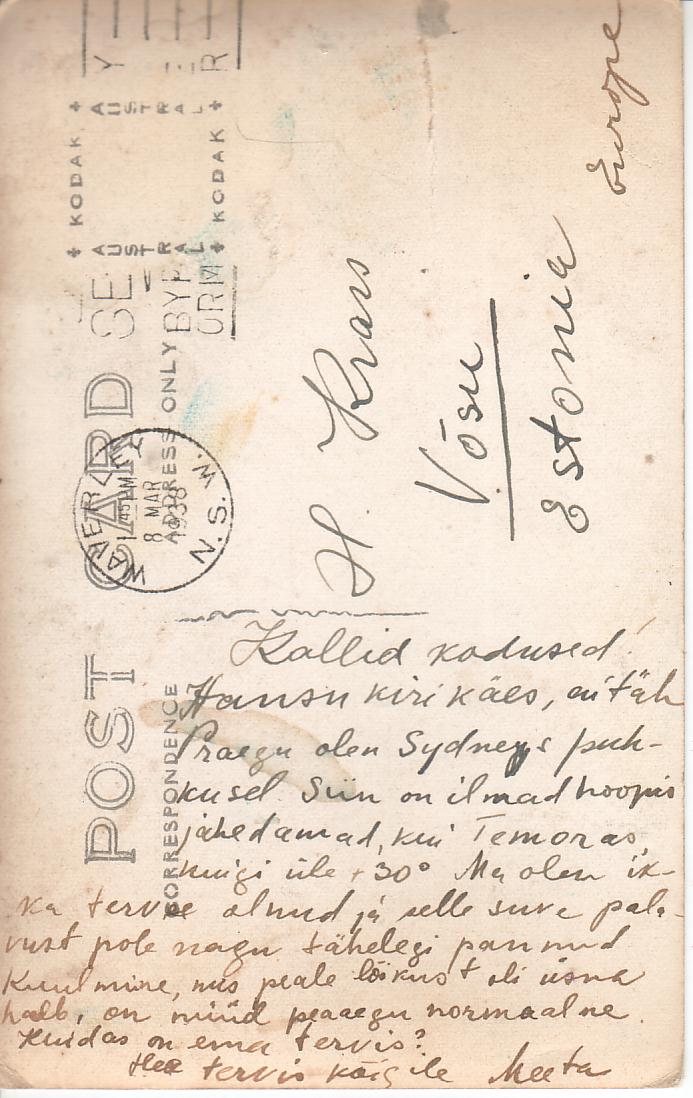 POST CARD
CORRESPONDENCE
ADDRESS ONLY
KODAK
KODAK
AUSTRAL
AUSTRAL
WAVERLEY
8 MAR
1938
N.S.W.
H. Krass
Võsu
Estonia
Europe
Kallid kodused!
Hansu kiri käes, aitäh
Praegu olen Sydneys puh-
kusel. Siin on ilmad hoopis
jahedamad, kui Temoras,
kuigi üle +30° Ma olen ik-
ka terve olnud ja selle suve pala-
vust pole nagu tähelegi pannud
Kuulmine, mis peale lõikust oli üsna
halb, on nüüd peaaegu normaalne.
Kuidas on ema tervis?
tervis kõigile Meeta